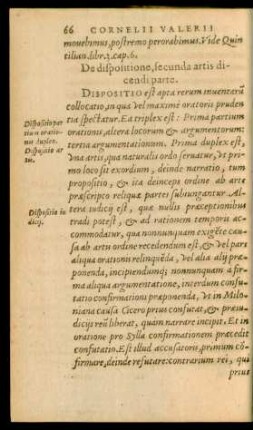 66 CORNELII VALERII
mouebimus, postremo perorabimus. Vide Quin
tilian. libr. 3. cap. 6.
De dispositione, secunda artis di-
cendi parte.
DISPOSITIO est apta rerum inuentarū
collocatio, in qua vel maximè oratoris pruden
tia spectatur. Ea triplex est: Prima partium
orationis, altera locorum & argumentorum:
tertia argumentationum. Prima duplex est,
Vna artis, quæ naturali ordo seruatur, vt pri
mo loco sit exordium, deinde narratio, tum
propositio, & ita deinceps ordine ab arte
præscripto reliquæ partes subiungantur. Al-
tera iudicij est, quæ nullis præceptionibus
tradi potest, & ad rationem temporis ac
commodatur, quæ nonnunquam exigēte cau
sa ab artis ordine recedendum est, & vel pars
aliqua orationis relinquēda, vel alia alij præ
ponenda, incipiendumq; nonnunquam à fir
ma aliqua argumentatione, interdum confu
tatio confirmationi præponenda, vt in Milo-
niana causa Cicero prius confutat, & præiu
dicijs reū liberat, quam narrare incipit. Et in
oratione pro Sylla confirmationem præcedit
confutatio. Est illud accusatoris, primum cō-
firmare, deinde refutare: contrarium rei, qui
prius
Dispositio par
tium oratio-
nis duplex.
Dispositio ar
tis.
Dispositio iu
dicij.